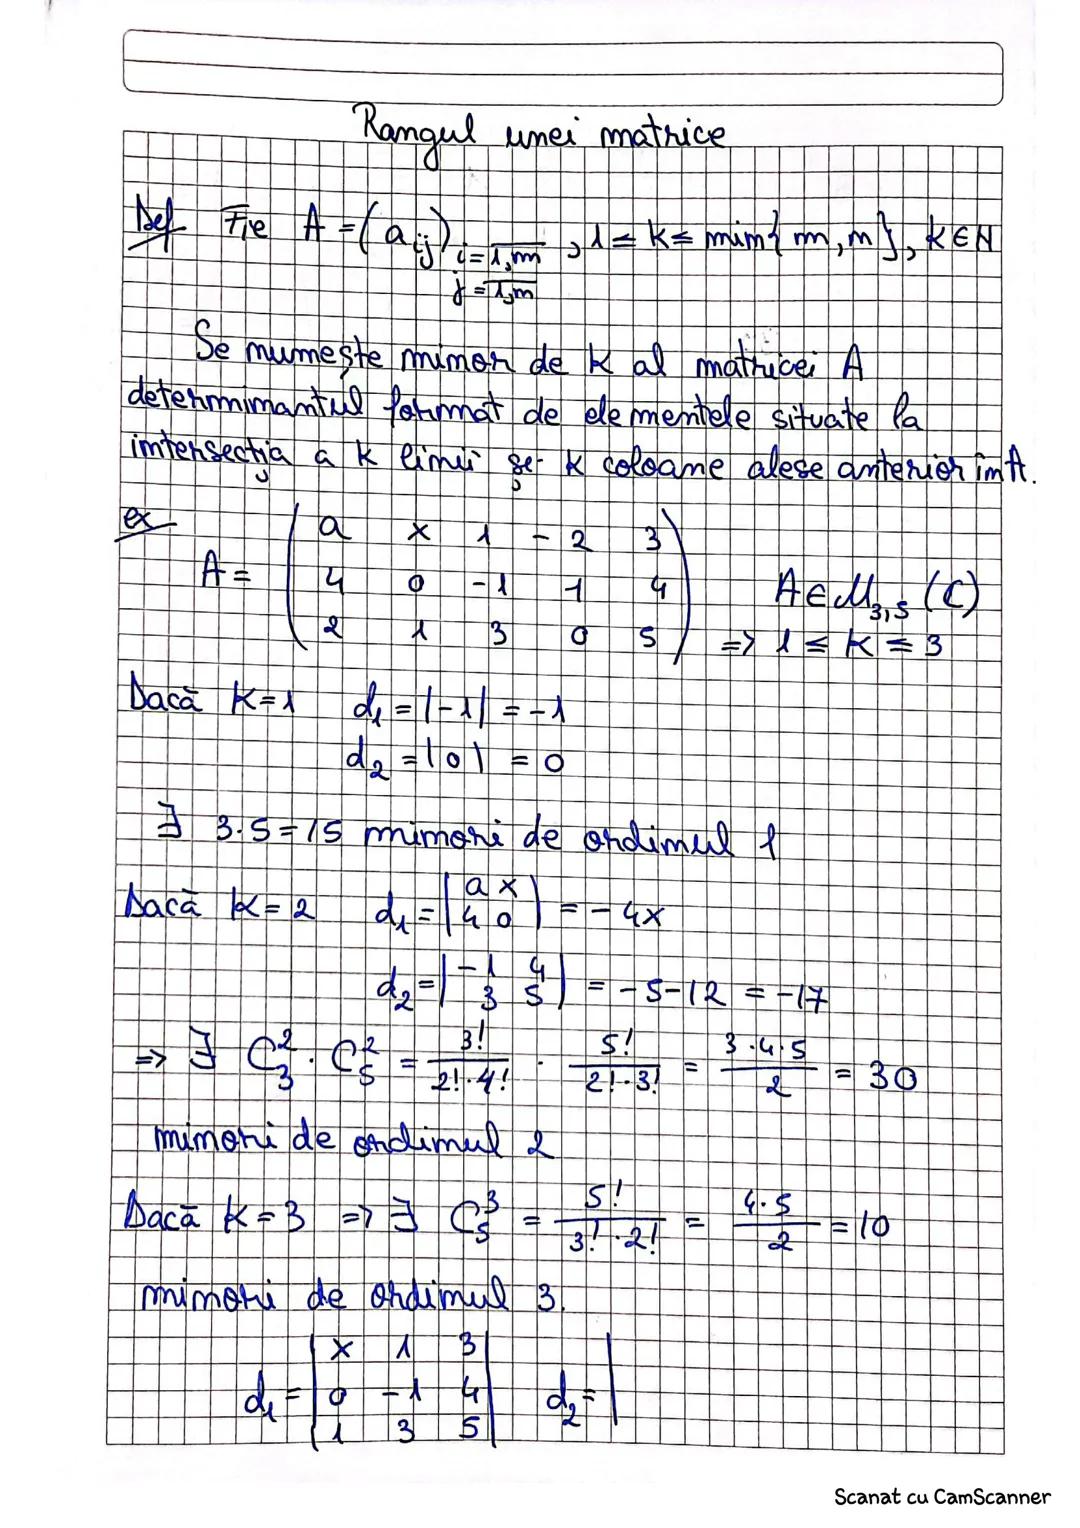 Rangul unei matrice
Def Fie A = (a_ij) i=1,m , 1 ≤ k ≤ min{m,n}, k∈N
j=1,n
Se numește minor de k al matricei A
determinantul format de elementele situate la
intersecția a k linii și k coloane alese anterior în A.
ex
A = ( a x 1 -2 3
4 0 -1 1 4
2 1 3 0 5 )
A ∈ M_{3,5} (C)
=> 1 ≤ k ≤ 3
Dacă k=1 d₁ = |-1| = -1
d₂ = |0| = 0
∃ 3·5=15 minori de ordinul 1
Dacă k=2 d₁ = |a x
4 0| = -4x
d₂ = |-1 4
3 5| = -5-12 = -17
=> ∃ C_3^2 · C_5^2 = 3!/(2!·4!) · 5!/(2!·3!) = (3·4·5)/2 = 30
minori de ordinul 2
Dacă k=3 => ∃ C_5^3 = 5!/(3!·2!) = (4·5)/2 = 10
minori de ordinul 3.
d₁ = |x 1 3
0 -1 4
1 3 5| d₂ = |
Scanat cu CamScanner